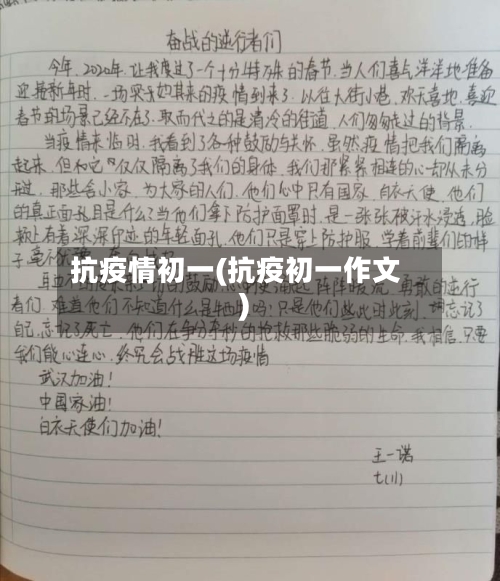 奋战的逆行者们
今年,2020年,让我度过了一个十分特殊的春节,当人们喜气洋洋地准备
迎接新年时,一场突如其来的疫情到来了,以往大街小巷,欢天喜地,喜迎
春节的场景已经不在了,取而代之的是清冷的街道,人们匆匆走过的背景.
当疫情来临时,我看到了各种鼓励与关怀,虽然疫情把我们隔离
起来,但和它"仅仅隔离了我们的身体,我们那紧紧相连的心却从未分
开过,那些舍小家,为大家的人们,他们心中只有国家,白衣天使,他们
的真正面孔且是什么?当他们拿下防护面罩时,是一张张被汗水浸透,脸
颊上有着深深印迹的年轻面孔,他们只是穿上防护服,学着前辈们的样
子
抗疫情初一(抗疫初一作文
)
们,难道他们不知道什么是牺牲吗?只是他们些此时此刻,忘记了
自己,忘记了死亡,他们在争分夺秒的抢救那些脆弱的生命,我相信,只要
我们能心连心,终究会战胜这场疫情
武汉加油!
中国加油!
白衣天使们加油!
王一诺
七(1)